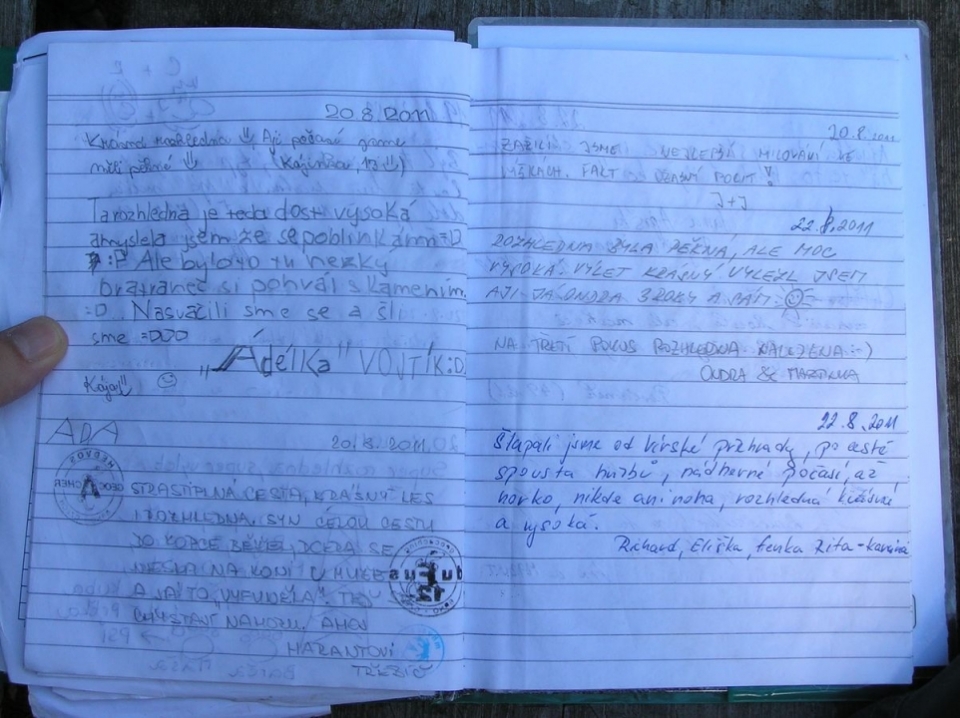 20.8.2011
Krásná rozhledna Aji počasí jsme
měli pěkné (Kájinka, 13)
Ta rozhledna je teda dost vysoká
a myslela jsem že se poblinkám =D
:P Ale bylo to tu hezký
si pohrál s kamením.
=D Nasvačili sme se a šli
sme =DDD
„Ádélka" VOJTÍK :D
Kája!!
ADA
20.8.2011
STRASTIPLNÁ CESTA, KRÁSNÝ LES
I ROZHLEDNA. SYN CELOU CESTU
DO KOPCE BĚŽEL, DCERA SE
NESLA NA KONI
A JÁ TO
NAHORU. AHOJ
HARANTOVI
GEOCACHER
13
20.8.2011
ZAŽILI JSME NEJLEPŠÍ MILOVÁNÍ VE
VÝŠKÁCH. FAKT ÚŽASNÝ POCIT!
J+J
22.8.2011
ROZHLEDNA BYLA PĚKNÁ, ALE MOC
VYSOKÁ. VÝLET KRÁSNÝ VYLEZL JSEM
AJI JÁ ONDRA 3 ROKY A PÁR
NA TŘETÍ POKUS ROZHLEDNA NALEZENA :-)
ONDRA & MARTINKA
22.8.2011
Šlapali jsme od Vírské přehrady, po cestě
spousta hub, nádherné počasí, až
horko, nikde ani noha, rozhledna krásná
a vysoká.
Richard, Eliška, fenka Rita